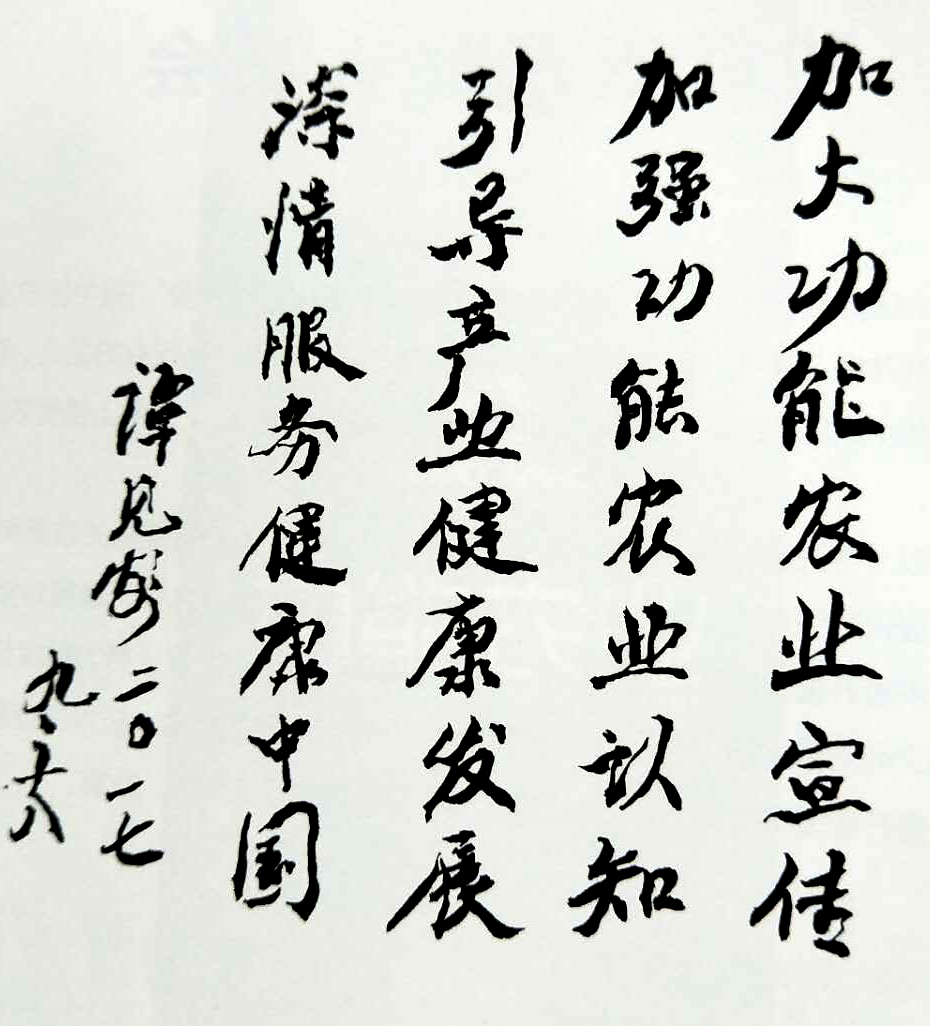 加大功能农业宣传
加强功能农业认知
引导产业健康发展
深情服务健康中国
谭见安二〇一七
九、十八